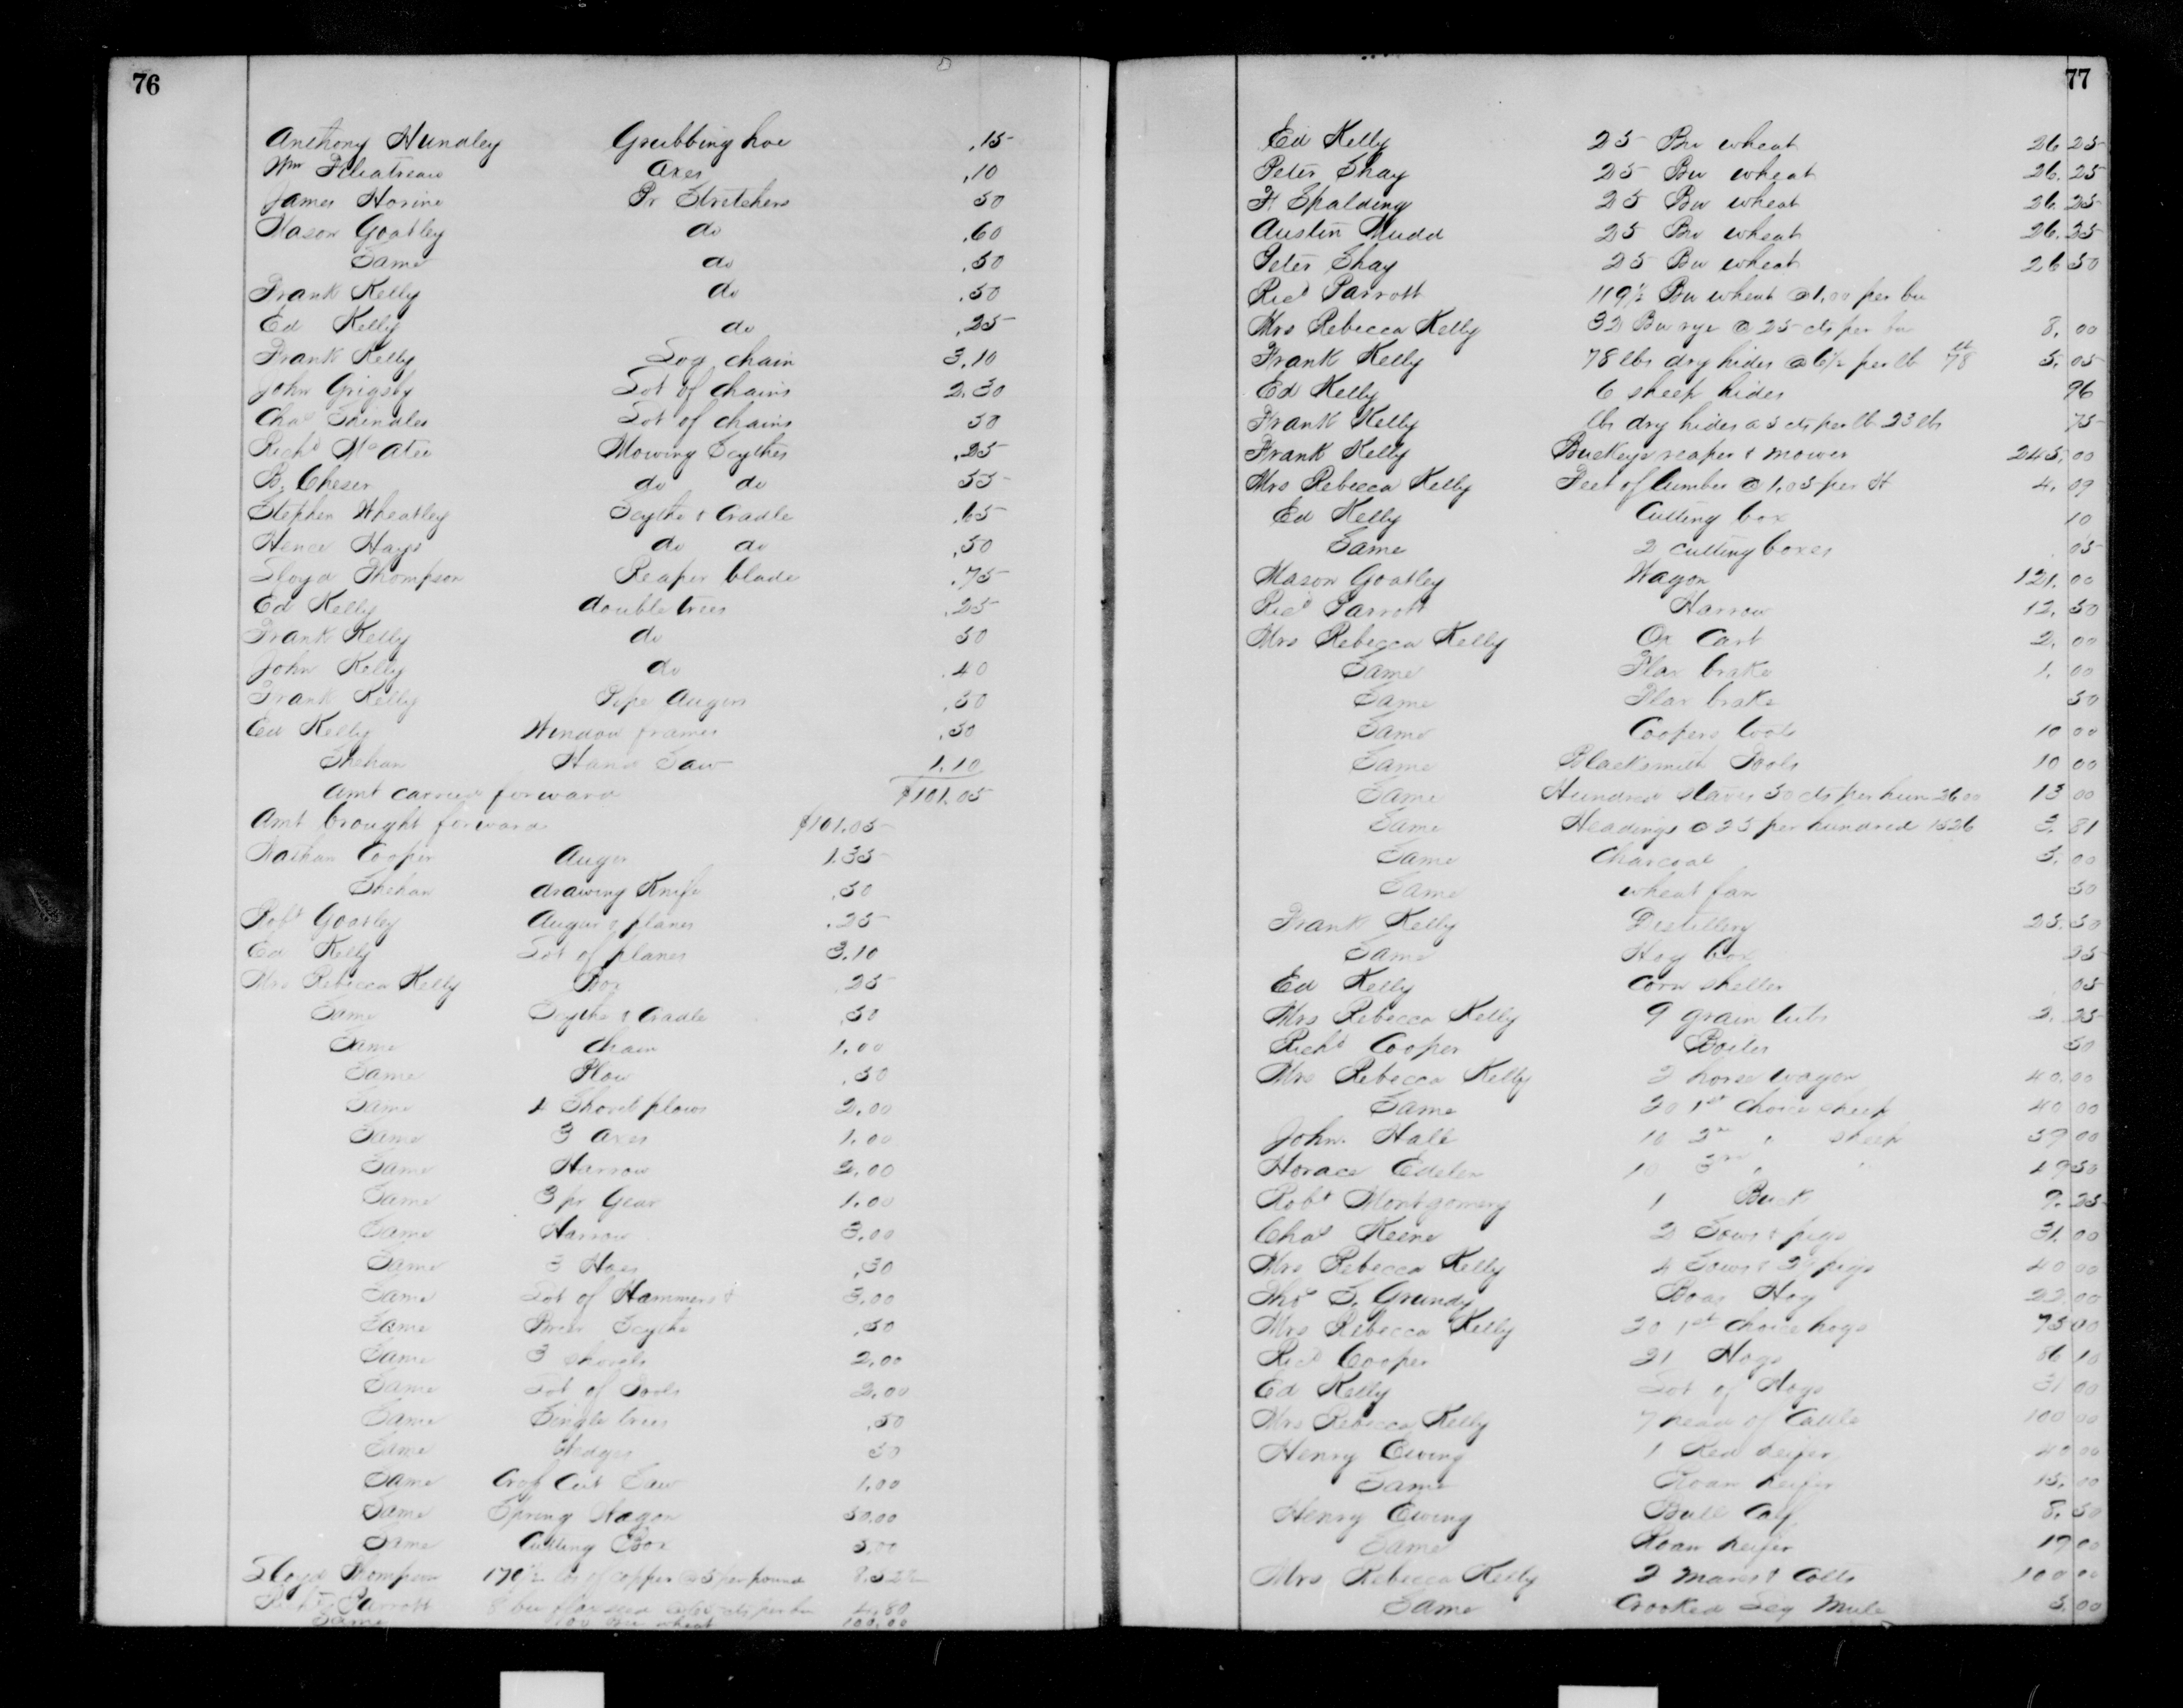 76
Anthony Hundley Grubbing hoe .15
Wm Axes .10
James Horine Pr Stretchers 50
Mason Goatley do .60
Same do .50
Frank Kelly do .50
Ed Kelly do .25
Frank Kelly Log chain 3.10
John Grigsby Lot of chains 2.30
Chas Lot of chains 50
Richd McAtee Mowing Scythes .25
B. Cheser do do 55
Stephen Wheatley Scythe & Cradle
Hence Hays do do .50
Lloyd Thompson Reaper blade .75
Ed Kelly double trees .25
Frank Kelly do 50
John Kelly do .40
Frank Kelly Pipe Augers .50
Ed Kelly Window frames .50
Shehan Hand Saw 1.10
Amt carried forward $101.05
Amt brought forward $101.05
Nathan Cooper Auger 1.35
Shehan drawing Knife .50
Robt Goatley Augur & planes .25
Ed Kelly Lot of planes 3.10
Mrs Rebecca Kelly Box .25
Same Scythe & Cradle .50
Same chain 1.00
Same Plow .50
Same 4 Shovel plows 2.00
Same 3 Axes 1.00
Same Harrow 2.00
Same 3 pr Gear 1.00
Same Harrow 3.00
Same 3 Hoes .30
Same Lot of Hammers & 3.00
Same Brier Scythe .50
Same 3 shovels 2.00
Same Lot of Tools 2.00
Same Single trees .50
Same Wedges 50
Same Cross Cut Saw 1.00
Same Spring Wagon 50.00
Same Cutting Box 5.00
Lloyd Thompson 170½ lbs of copper @ 5 per pound 8.52½
Parrott 8 bu flax seed per bu .80
Same 100 bu wheat 100.00
77
Ed Kelly 25 Bu wheat 26.25
Peter Shay 25 Bu wheat 26.25
H Spalding 25 Bu wheat 26.25
Austin Mudd 25 Bu wheat 26.25
Peter Shay 25 Bu wheat 26 50
Ricd Parrott 119½ Bu wheat @ 1.00 per bu
Mrs Rebecca Kelly 32 Bu rye @ 25 cts per bu 8.00
Frank Kelly 78 lbs dry hides @ 6½ per lb 78 5.05
Ed Kelly 6 sheep hides 96
Frank Kelly lbs dry hides a 3 cts per lb 23 lbs 75
Frank Kelly Buckeye reaper & mower 245.00
Mrs Rebecca Kelly Feet of lumber @ 1.05 per H 4.09
Ed Kelly Cutting box 10
Same 2 cutting boxes 05
Mason Goatley Wagon 121.00
Ricd Parrott Harrow 12.50
Mrs Rebecca Kelly Ox Cart 2.00
Same Flax brake 1.00
Same Flax brake 50
Same Coopers tools 10 00
Same Blacksmith Tools 10 00
Same Hundred staves 50 cts per hun 2600 13 00
Same Headings @ 25 per hundred 1526 3.81
Same Charcoal 5.00
Same wheat fan 50
Frank Kelly Distillery 25.50
Same Hog box 25
Ed Kelly Corn sheller 05
Mrs Rebecca Kelly 9 grain tubs 2.25
Richd Cooper Boiler 50
Mrs Rebecca Kelly 2 horse wagon 40.00
Same 20 1st choice sheep 40 00
John Hall 10 2nd " sheep 59 00
Horace Edelen 10 3rd " " 49 50
Robt Montgomery 1 Buck 9.25
Chas Keene 2 Sows & pigs 31.00
Mrs Rebecca Kelly 4 Sows & pigs 40 00
Thos S. Grundy Boar Hog 22.00
Mrs Rebecca Kelly 20 1st choice hogs 75 00
Ricd Cooper 21 Hogs 86 10
Ed Kelly Lot of Hogs 31 00
Mrs Rebecca Kelly 7 head of Cattle 100 00
Henry Ewing 1 Red heifer 40 00
Same Roan heifer 15.00
Henry Ewing Bull Calf 8.50
Same Roan heifer 19 00
Mrs Rebecca Kelly 2 mares & Colts 100 00
Same Crooked Leg Mule 5.00